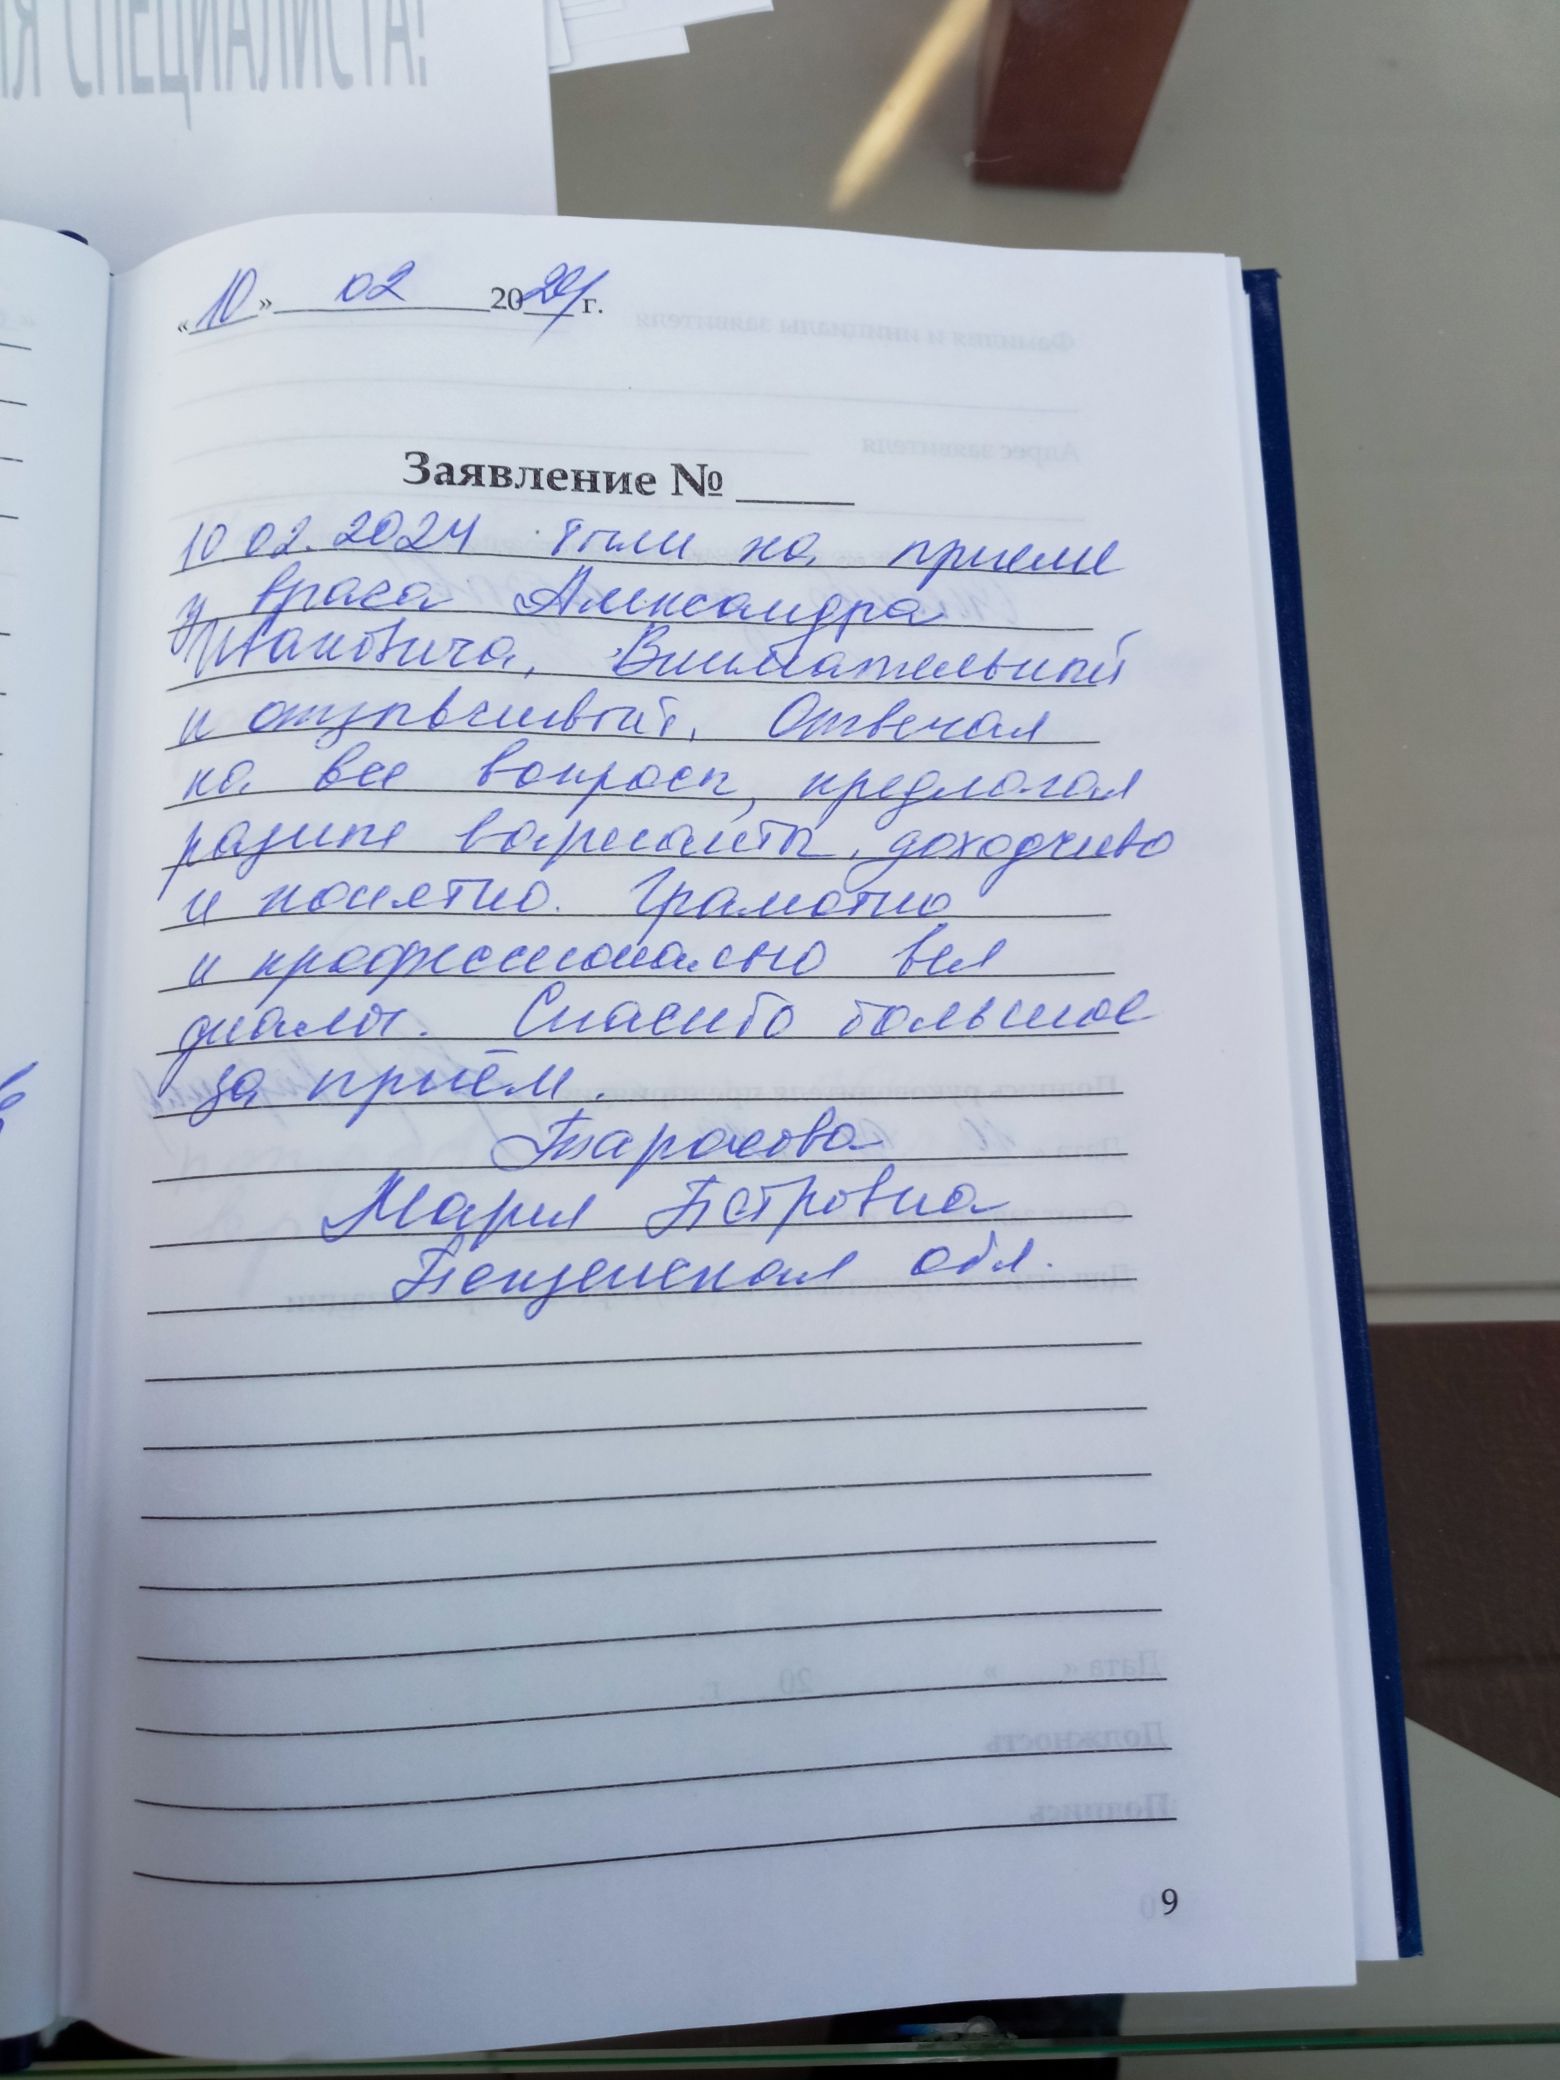 ИЯ СПЕЦИАЛИСТА!
«10» 02 2024 г.
Заявление № ____
10 02. 2024 были на приеме
у врача Александра
Ивановича. Внимательный
и отзывчивый. Отвечал
на все вопросы, предлагал
разные варианты, доходчиво
и понятно. Грамотно
и профессионально вел
диалог. Спасибо большое
за приём.
Тарахова
Мария Петровна
Пензенская обл.
9